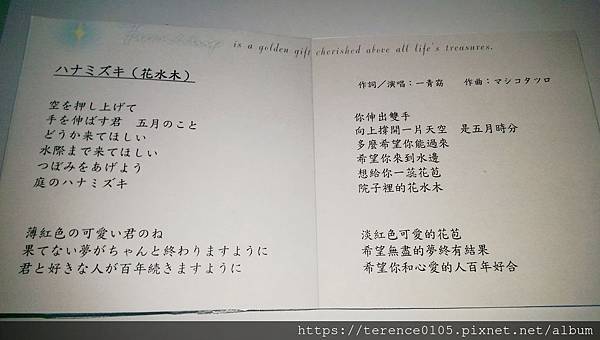 is a golden gift cherished above all life's treasures.
ハナミズキ(花水木)
空を押し上げて
手を伸ばす君　五月のこと
どうか来てほしい
水際まで来てほしい
つぼみをあげよう
庭のハナミズキ
薄紅色の可愛い君のね
果てない夢がちゃんと終わりますように
君と好きな人が百年続きますように
作詞／演唱：一青窈　作曲：マシコタツロ
你伸出雙手
向上撐開一片天空　是五月時分
多麼希望你能過來
希望你來到水邊
想給你一蕊花苞
院子裡的花水木
淡紅色可愛的花苞
希望無盡的夢終有結果
希望你和心愛的人百年好合
https://terence0105.pixnet.net/album